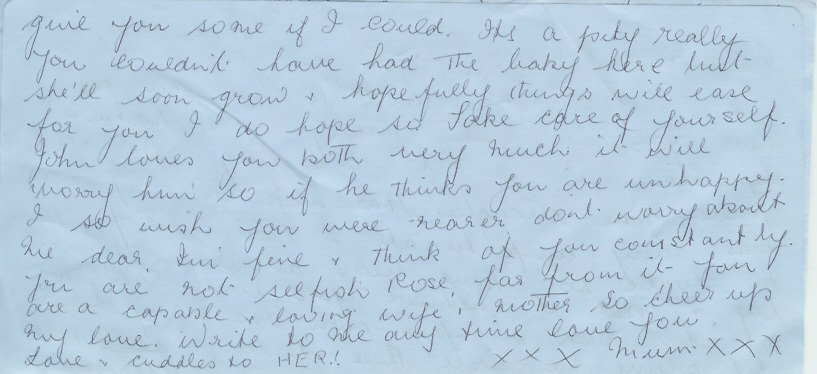 give you some if I could. Its a pity really
you couldn't have had the baby here but
she'll soon grow & hopefully things will ease
for you I do hope so Take care of yourself.
John loves you both very much it will
worry him so if he thinks you are unhappy.
I so wish you were nearer dont worry about
me dear, I'm fine & think of you constantly.
You are not selfish Rose, far from it you
are a capable & loving wife & mother so cheer up
my love. Write to me any time love you.
Love & cuddles to HER!! x x x Mum x x x